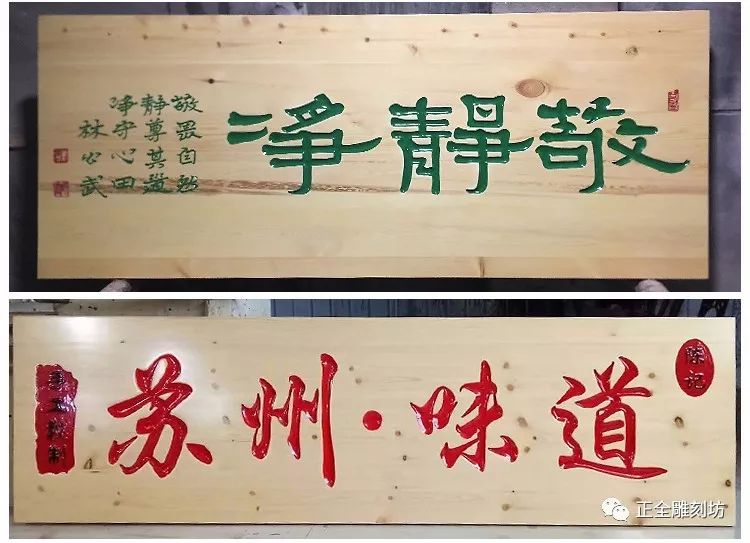 敬靜凈
敬畏自然
靜尊其道
凈守心田
林公武
苏州·味道
陈记
正全雕刻坊